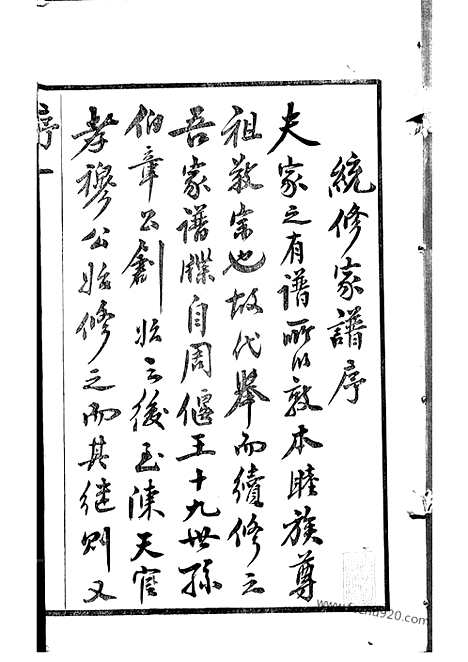 統修家譜序
夫家之有譜所以敦本睦族尊
祖敬宗也故代舉而續修之
吾家譜牒自周偃王十九世孫
伯章公創始之後至陳天官
孝穆公始修之而其継則又
序一